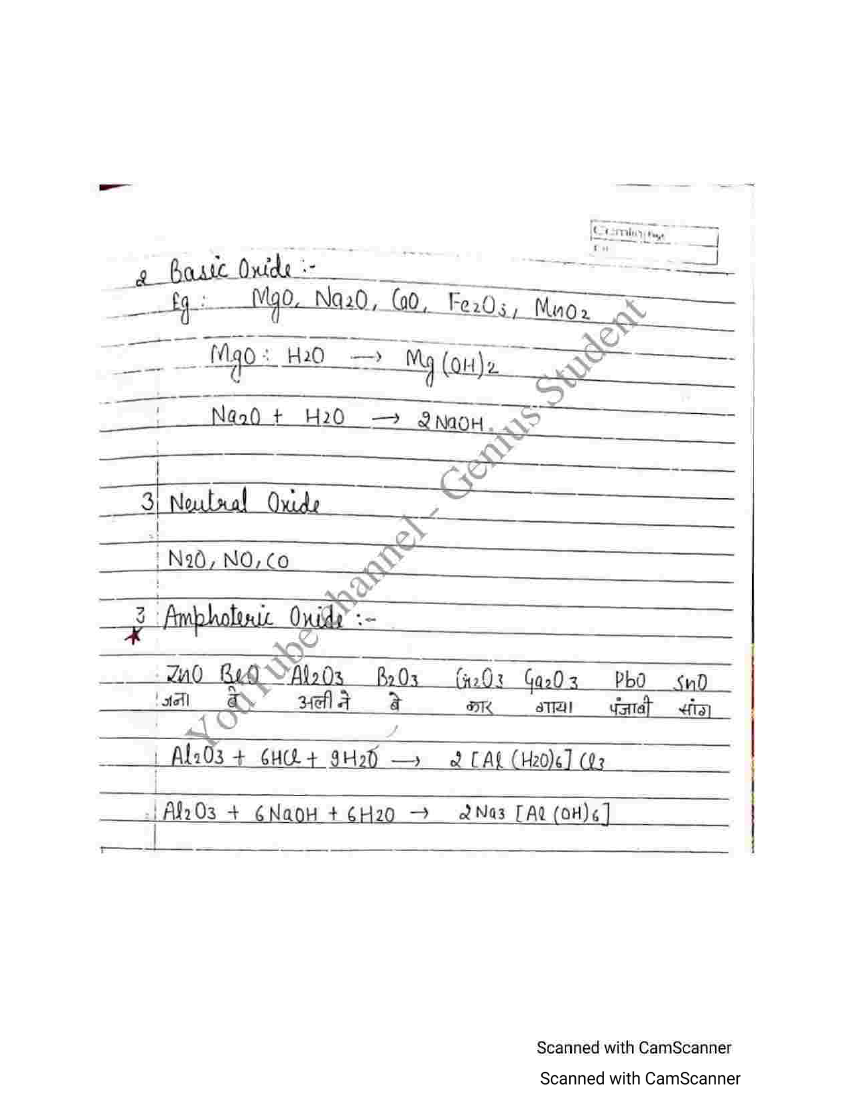 2 Basic Oxide :-
Eg : MgO, Na2O, CaO, Fe2O3, MnO2
MgO : H2O → Mg(OH)2
Na2O + H2O → 2NaOH.
3 Neutral Oxide
N2O, NO, CO
3 Amphoteric Oxide :-
ZnO BeO Al2O3 B2O3 Cr2O3 Ga2O3 PbO SnO
जना बे अली ने बे कार गाया पंजाबी सांग
Al2O3 + 6HCl + 9H2O → 2 [Al (H2O)6] Cl3
Al2O3 + 6NaOH + 6H2O → 2Na3 [Al (OH)6]
YouTube Channel - Genius Student
Scanned with CamScanner
Scanned with CamScanner